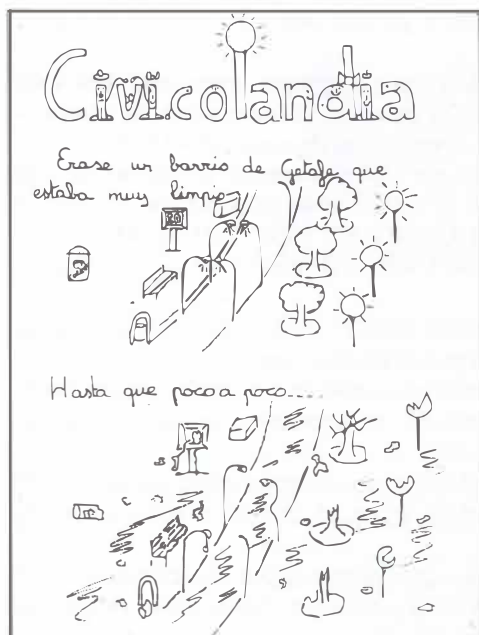 Civicolandia
Erase un barrio de Getafe que
estaba muy limpio
Hasta que poco a poco....